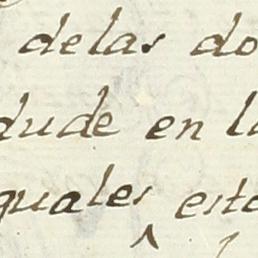 delas do
dude en l
quales est